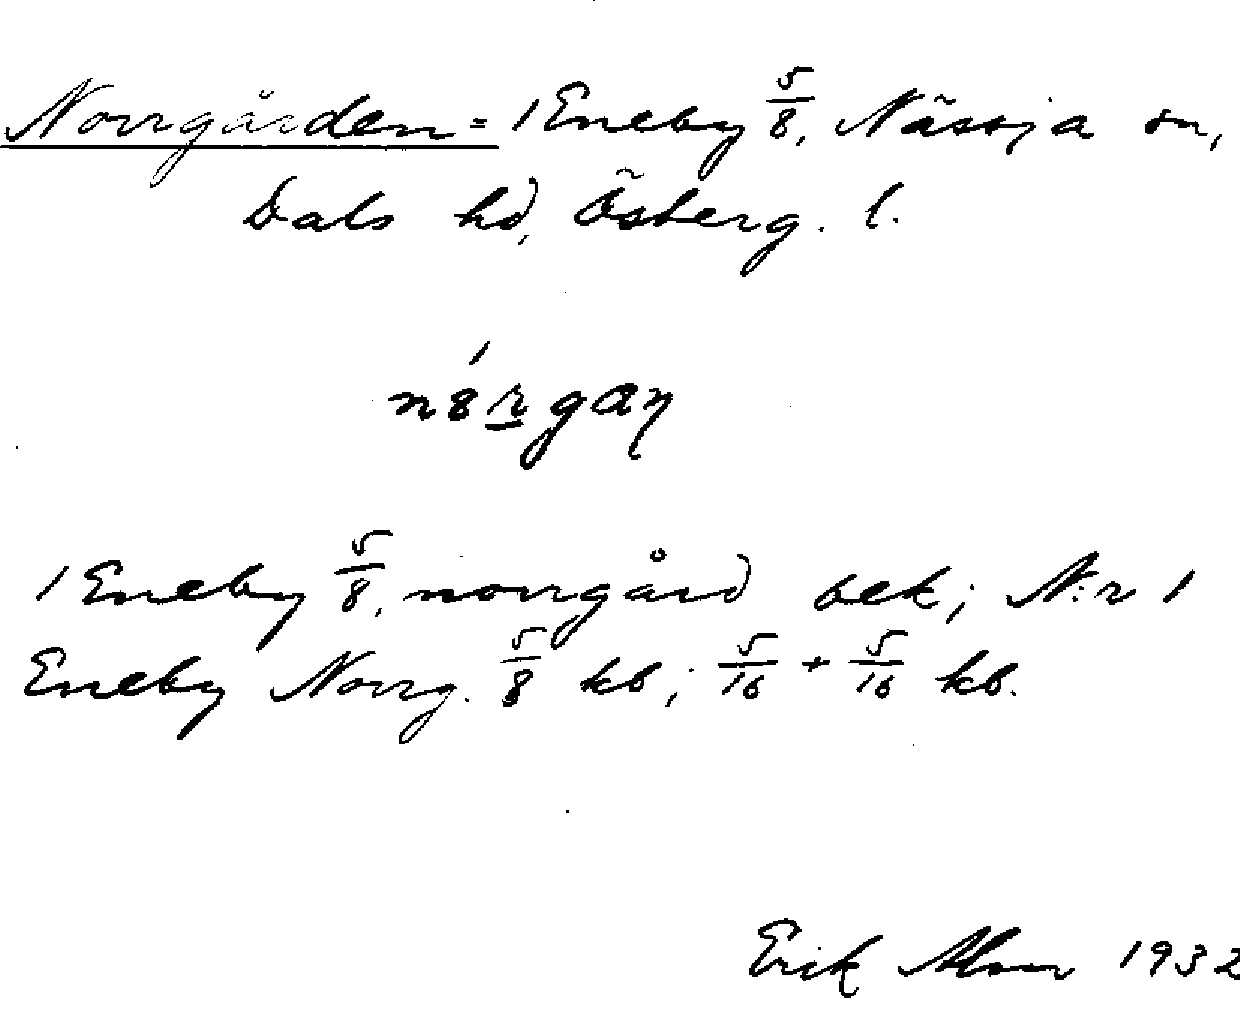 Norrgården = 1 Eneby 5/8, Nässja sn,
Dals hd, Österg. l.
nȣ́rgaη
1 Eneby 5/8, norrgård bek; N:r 1
Eneby Norrg. 5/8 kb; 5/16 + 5/16 kb.
Erik Abm 1932